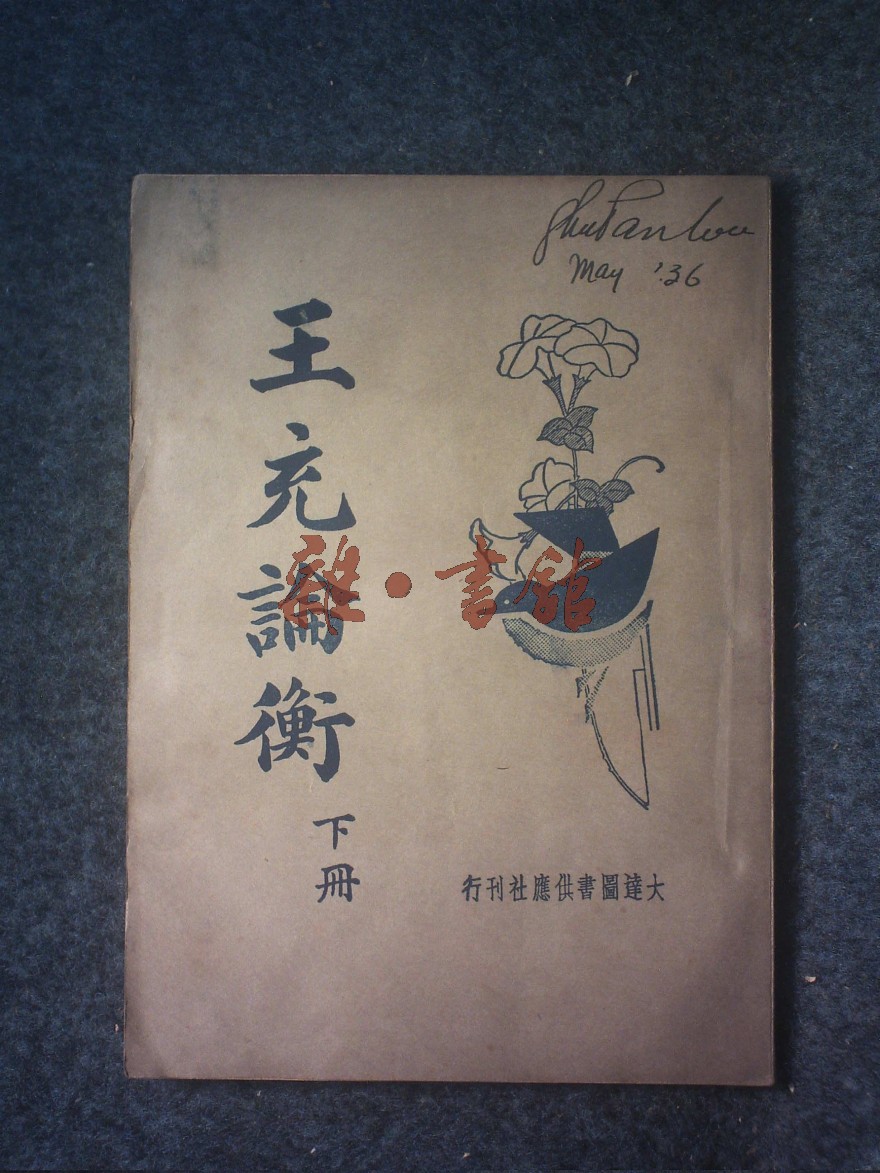 May '36
王充論衡
下冊
雜·書館
大達圖書供應社刊行